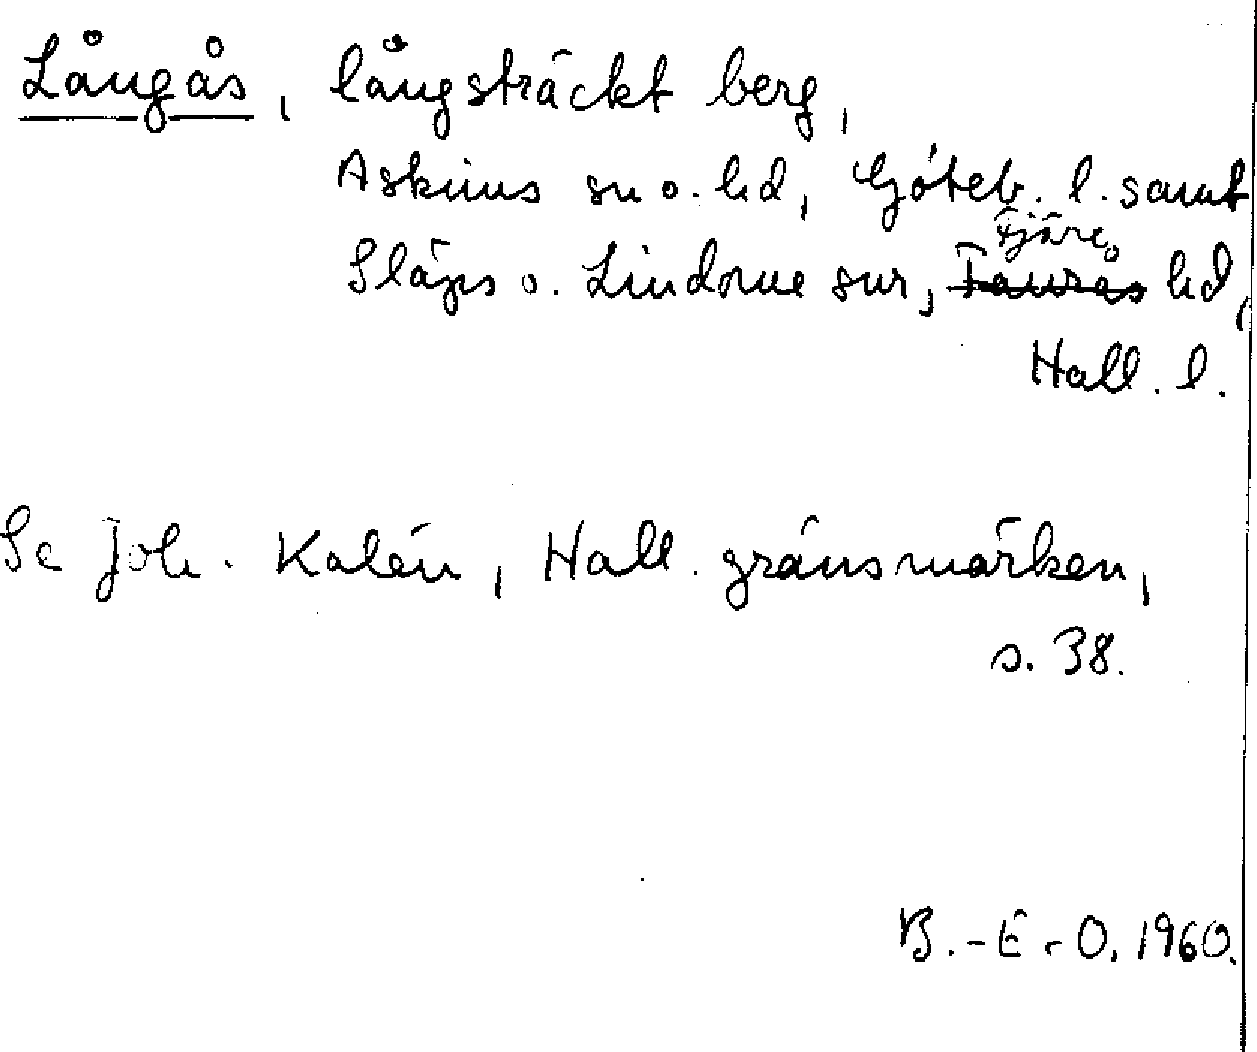 Långås, långsträckt berg,
Askims sn o. hd, Göteb. l. samt
Fjäre
Släps o. Lindome snr, Faurås hd,
Hall. l.
Se Joh. Kalén, Hall. gränsmärken,
s. 38.
B.-E. O. 1960.